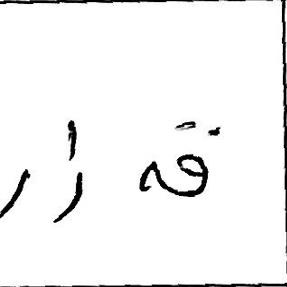 قەرار